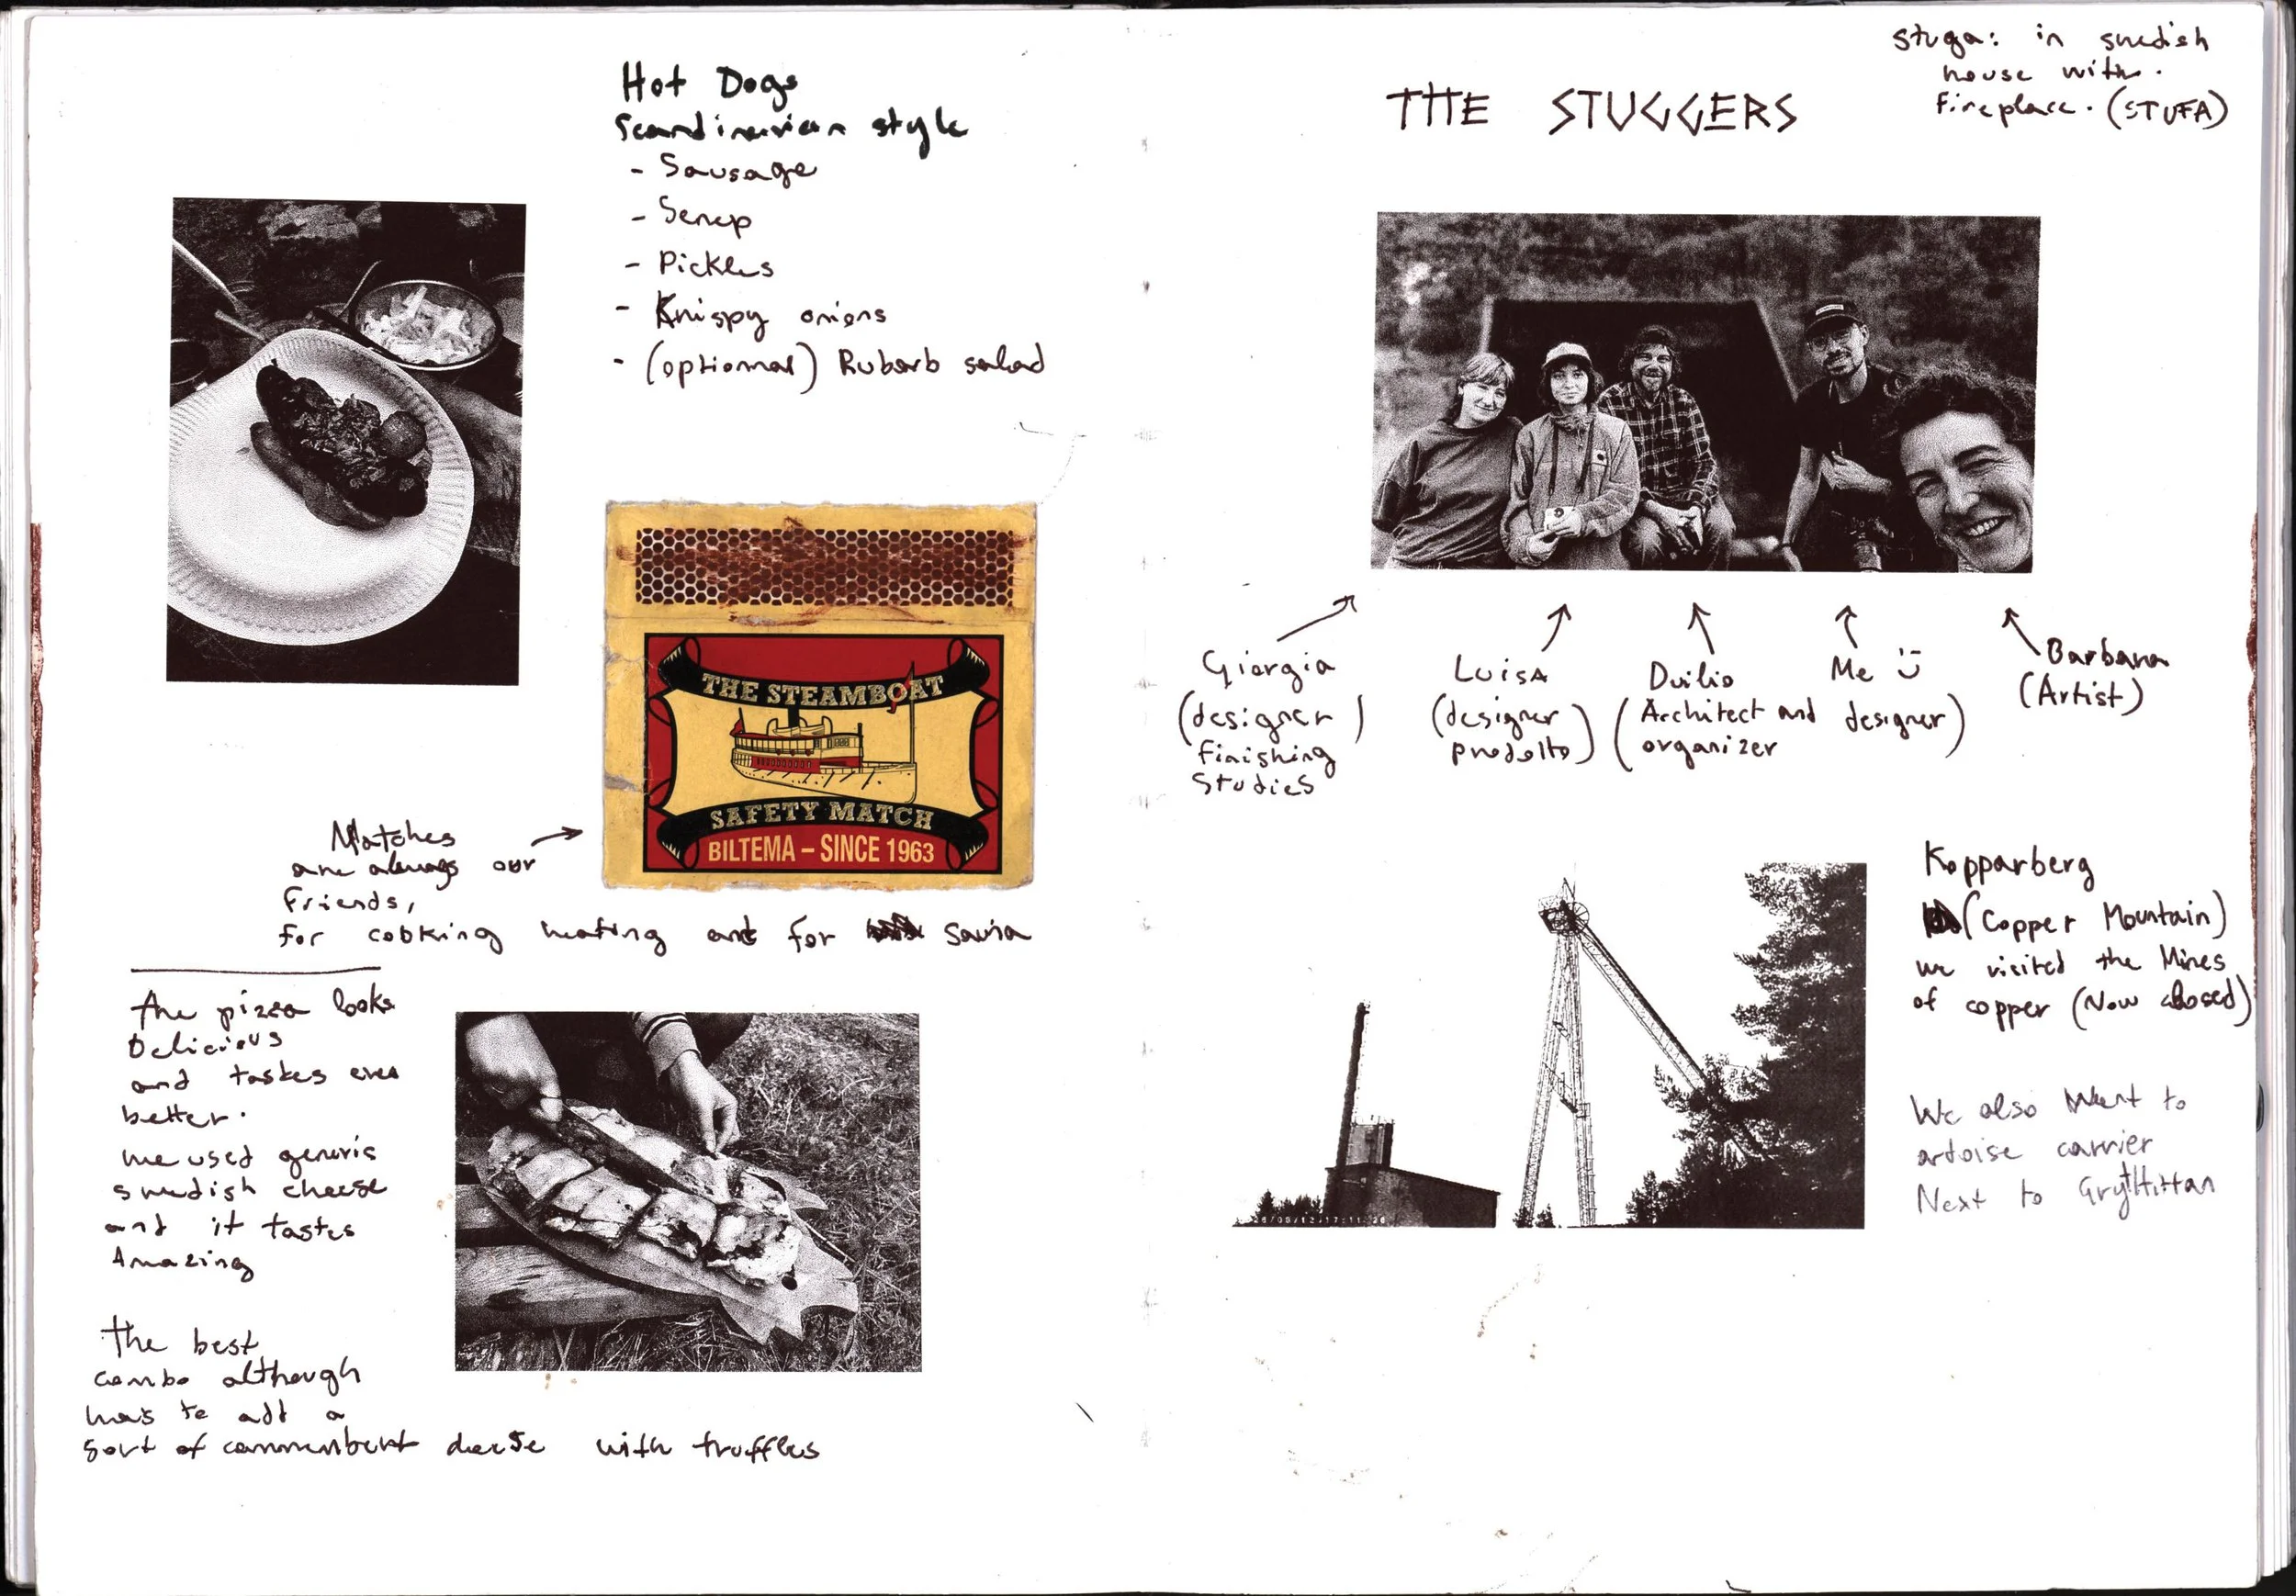 Hot Dogs
Scandinavian style
- Sausage
- Senap
- Pickles
- Krispy onions
- (optionnal) Rubarb salad
THE STEAMBOAT
SAFETY MATCH
BILTEMA – SINCE 1963
Matches
are always our
friends,
for cooking heating and for sauna
The pizza looks
Delicious
and tastes even
better.
we used generis
swedish cheese
and it tastes
Amazing
The best
combo although
was to add a
sort of cammenbert cheese with truffles
THE STUGGERS
Stuga: in swedish
house with
fireplace. (STUFA)
Giorgia
(designer)
finishing
studies
Luisa
(designer
prodotto)
Duilio
(Architect and designer)
organizer
Me
Barbara
(Artist)
Kopparberg
(Copper Mountain)
we visited the Mines
of copper (Now closed)
We also Went to
ardoise carrier
Next to Grythittan